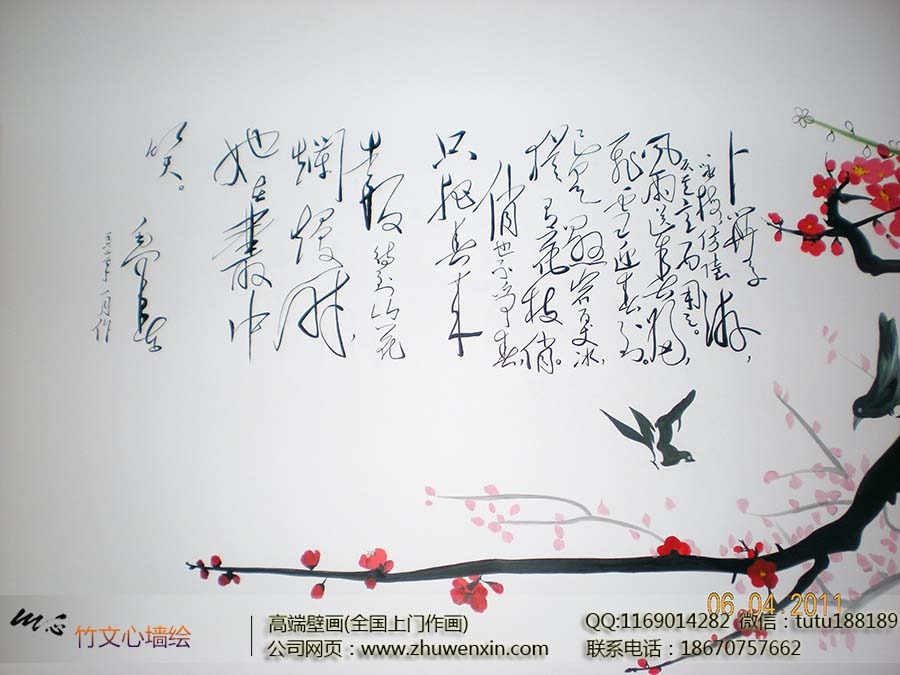 卜算子
反其意而用之。
风雨送春归，
飞雪迎春到。
已是悬崖百丈冰，
犹有花枝俏。
俏也不争春，
只把春来
报。待到山花
烂漫时，
她在叢中
笑。
毛泽东
06 04 2011
竹文心墙绘
高端壁画(全国上门作画)
公司网页：www.zhuwenxin.com
QQ:1169014282 微信：tutu188189
联系电话：18670757662